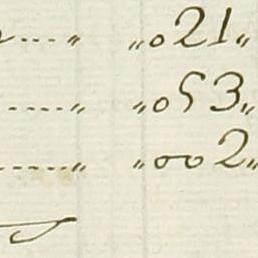 ---- „ „021„
---- „ „053„
---- „ „002„